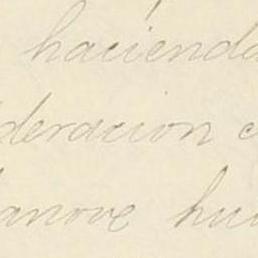 haciend
deracion
anove hu